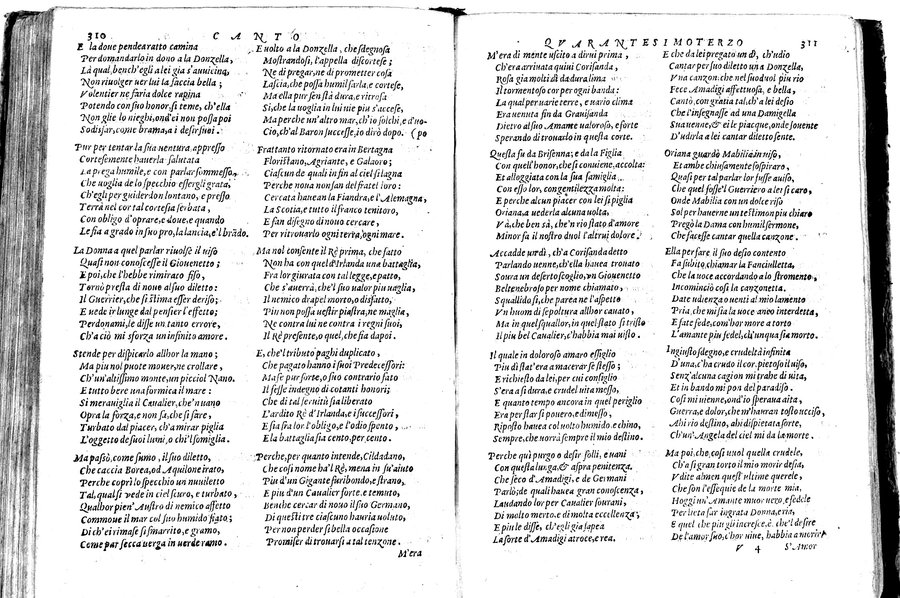 310 CANTO
E la doue pendea ratto camina
Per domandarlo in dono a la Donzella,
Là qual, bench'egli a lei gia s'auuicina,
Non riuolger uer lui la faccia bella;
Volentier ne faria dolce rapina
Potendo con suo honor, si teme, ch'ella
Non glie lo nieghi, ond'ei non possa poi
Sodisfar, come brama, a i desir suoi.
Pur per tentar la sua uentura, appresso
Cortesemente hauerla salutata
La prega humile, e con parlar sommesso,
Che uoglia de lo specchio essergli grata,
Ch'egli per guiderdon lontano, e presso
Terrà nel cor tal cortesia serbata,
Con obligo d'oprare, e doue, e quando
Le sia a grado in suo pro, la lancia, e'l brãdo.
La Donna a quel parlar riuolse il uiso
Quasi non conoscesse il Giouenetto;
E poi, che l'hebbe rimirato fiso,
Tornò presta di nouo al suo diletto:
Il Guerrier, che si stima esser deriso;
E uede ir lunge dal pensier l'effetto;
Perdonami, le disse un tanto errore,
Ch'a ciò mi sforza un infinito amore.
Stende per dispicarlo allhor la mano;
Ma piu nol puote mouer, ne crollare,
Ch'un'altissimo monte, un picciol Nano.
E tutto bere una formica il mare:
Si merauiglia il Caualier, che uano
Opra la forza, e non sa, che si fare,
Turbato dal piacer, ch'a mirar piglia
L'oggetto de suoi lumi, o chi'l somiglia.
Ma passò, come fumo, il suo diletto,
Che caccia Borea, od Aquilone irato,
Perche coprì lo specchio un nuuiletto
Tal, qual si uede in ciel scuro, e turbato,
Qualhor pien' Austro di nemico affetto
Commoue il mar col suo humido fiato;
Di ch'ei rimase sì smarrito, e gramo,
Come par secca uerga in uerde ramo.
E uolto a la Donzella, che sdegnosa
Mostrandosi, l'appella discortese;
Ne di pregar, ne di prometter cosa
Lascia, che possa humil farla, e cortese,
Ma ella pur sen stà dura, e ritrosa
Si, che la uoglia in lui uie piu s'accese,
Ma perche un'altro mar, ch'io solchi, e d'uo-
Cio, ch'al Baron successe, io dirò dopo. (po
Frattanto ritornato era in Bertagna
Florestano, Agriante, e Galaoro;
Ciascun de quali in fin al ciel si lagna
Perche noua non san del fratel loro:
Cercata haueano la Fiandra, e l'Alemagna,
La Scotia, e tutto il franco tenitoro,
E fan disegno di nouo cercare,
Per ritrouarlo ogni terra, ogni mare.
Ma nol consente il Rè prima, che fatto
Non ha con quel d'Irlanda una battaglia,
Fra lor giurata con tal legge, e patto,
Che s'auuerrà, che'l suo ualor piu uaglia,
Il nemico drapel morto, o disfatto,
Piu non possa uestir piastra, ne maglia,
Ne contra lui ne contra i regni suoi,
Il Rè presente, o quel, che sia dapoi.
E, che'l tributo paghi duplicato,
Che pagato hanno i suoi Predecessori:
Ma se pur forte, o suo contrario fato
Il fesse indegno di cotanti honori;
Che di tal seruitù sia liberato
L'ardito Rè d'Irlanda, e i successori,
E sia fra lor l'obligo, e l'odio spento,
E la battaglia sia cento, per cento.
Perche, per quanto intende, Cildadano,
Che così nome ha'l Rè, mena in su'aiuto
Piu d'un Gigante furibondo, e strano,
E piu d'un Caualier forte, e temuto,
Benche cercar di nouo il suo Germano,
Di questi tre ciascuno hauria uoluto,
Per non perder sì bella occasione
Promiser di trouarsi a tal tenzone.
M'era
QVARANTESIMOTERZO 311
M'era di mente uscito a dirui prima,
Ch'era arriuata quiui Corisanda,
Rosa gia molti dì da dura lima
Il tormentoso cor per ogni banda:
La qual per uarie terre, e uario clima
Era uenuta fin da Grauisanda
Dietro al suo Amante ualoroso, e forte
Sperando di trouarlo in questa corte.
Questa fu da Brisenna, e da la Figlia
Con quell'honor, che si conuiene, accolta:
Et alloggiata con la sua famiglia
Con esso lor, con gentilezza molta:
E perche alcun piacer con lei si piglia
Oriana a uederla alcuna uolta,
Và, che ben sà, che'n rio stato d'amore
Minor fa il nostro duol l'altrui dolore.
Accadde un dì, ch'a Corisanda detto
Parlando uenne, ch'ella hauea trouato
Soura un deserto scoglio, un Giouenetto
Beltenebroso per nome chiamato,
Squallido sì, che parea ne l'aspetto
Vn huom di sepoltura allhor cauato,
Ma in quel squallor, in quel stato sì tristo
Il piu bel Caualier, c'habbia mai uisto.
Il quale in doloroso amaro essiglio
Piu dì stat'era a macerar se stesso;
E richiesto da lei, per cui consiglio
S'era a sì dura, e crudel uita messo,
E quanto tempo ancora in quel periglio
Era per star sì pouero, e dimesso,
Riposto hauea col uolto humido, e chino,
Sempre, che uorrà sempre il mio destino.
Perche quì purgo o desir folli, e uani
Con questa lunga, & aspra penitenza.
Che seco d'Amadigi, e de Germani
Parlò; de quali hauea gran conoscenza,
Laudando lor per Caualier sourani,
Di molto merto, e di molta eccellenza;
E piu le disse, ch'egli gia sapea
La sorte d'Amadigi atroce, e rea.
E che da lei pregato un dì, ch'udio
Cantar per suo diletto una Donzella,
Vna canzon: che nel suo duol piu rio
Fece Amadigi affettuosa, e bella,
Cantò, con gratia tal, ch'a lei desio
Che l'insegnasse ad una Damigella
Sua uenne, & ei le piacque, onde souente
D'udirla a lei cantar diletto sente.
Oriana guardò Mabilia in uiso,
Et ambe chiusamente sospiraro,
Quasi per tal parlar lor fusse auiso,
Che quel fosse'l Guerriero a lei sì caro,
Onde Mabilia con un dolce riso
Sol per hauerne un testimon piu chiaro
Pregò la Dama con humil sermone,
Che facesse cantar quella canzone.
Ella per fare il suo desio contento
Fa subito chiamar la Fanciulletta,
Che la uoce accordando a lo stromento,
Incominciò così la canzonetta.
Date udienza o uenti al mio lamento
Pria, che mi sia la uoce anco interdetta,
E fate fede, com'hor more a torto
L'amante piu fedel, ch'unqua sia morto.
Ingiusto sdegno, e crudeltà infinita
D'una, c'ha crudo il cor, pietoso il uiso,
Senz'alcuna cagion mi trahe di uita,
Et in bando mi pon del paradiso.
Così mi uienne, ond'io speraua aita,
Guerra, e dolor, che m'hauran tosto ucciso,
Ahi rio destino, ahi dispietata sorte,
Ch'un'Angela del ciel mi da la morte.
Ma poi, che, così uuol quella crudele,
Ch'a sì gran torto il mio morir desia,
Vdite almen quest'ultime querele,
Che son l'essequie de la morte mia.
Hoggi un'Amante muor uostro, e fedele
Per uietar sar ingrata Donna, eria,
E quel che piu gli incresce, è che'l desire
De l'amor suo, c'hor uiue, habbia a morire
V 4 S'Amor